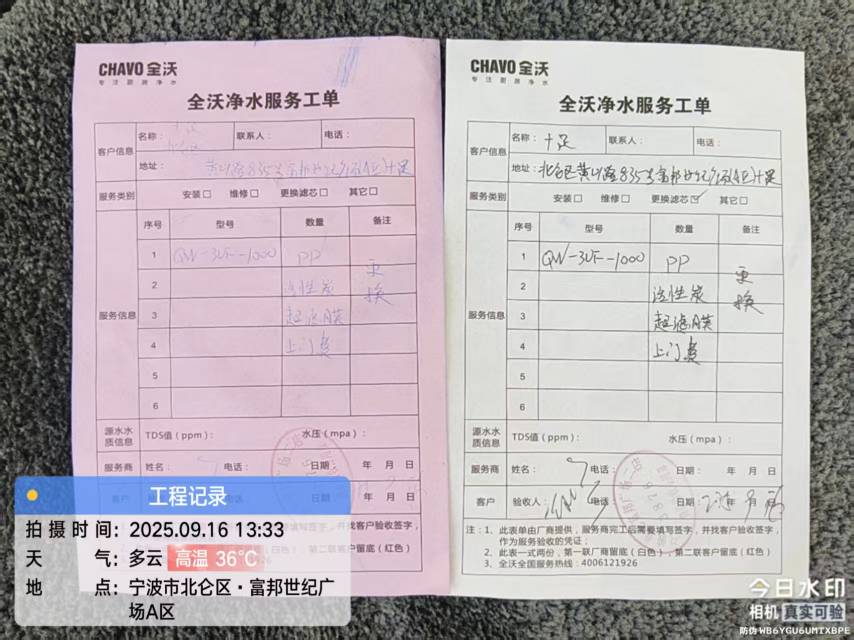 CHAVO 全沃
专注厨房净水
全沃净水服务工单
客户信息 名称： 十足 联系人： 电话：
地址： 黄山路835号富邦世纪广场(A区)十足
服务类别 安装□ 维修□ 更换滤芯□ 其它□
序号 型号 数量 备注
服务信息
1 QW-3UF-1000 PP 更换
2 活性炭
3 超滤膜
4 上门费
5
6
源水水质信息 TDS值（ppm）： 水压（mpa）：
服务商 姓名： 电话： 日期： 年 月 日
客户
CHAVO 全沃
专注厨房净水
全沃净水服务工单
客户信息 名称： 十足 联系人： 电话：
地址： 北仑区黄山路835号富邦世纪广场(A区)十足
服务类别 安装□ 维修□ 更换滤芯☑ 其它□
序号 型号 数量 备注
服务信息
1 QW-3UF-1000 PP 更换
2 活性炭
3 超滤膜
4 上门费
5
6
源水水质信息 TDS值（ppm）： 水压（mpa）：
服务商 姓名： 电话： 日期： 年 月 日
客户 验收人： 电话： 日期：
注：1、此表单由厂商提供，服务商完工后需要填写签字，并找客户验收签字，
作为服务验收的凭证；
2、此表一式两份，第一联厂商留底（白色），第二联客户留底（红色）
3、全沃全国服务热线：4006121926
工程记录
拍摄时间：2025.09.16 13:33
天气：多云 高温 36℃
地点：宁波市北仑区·富邦世纪广
场A区
今日水印
相机 真实可验
防伪 WB6YGU6UMTXBPE